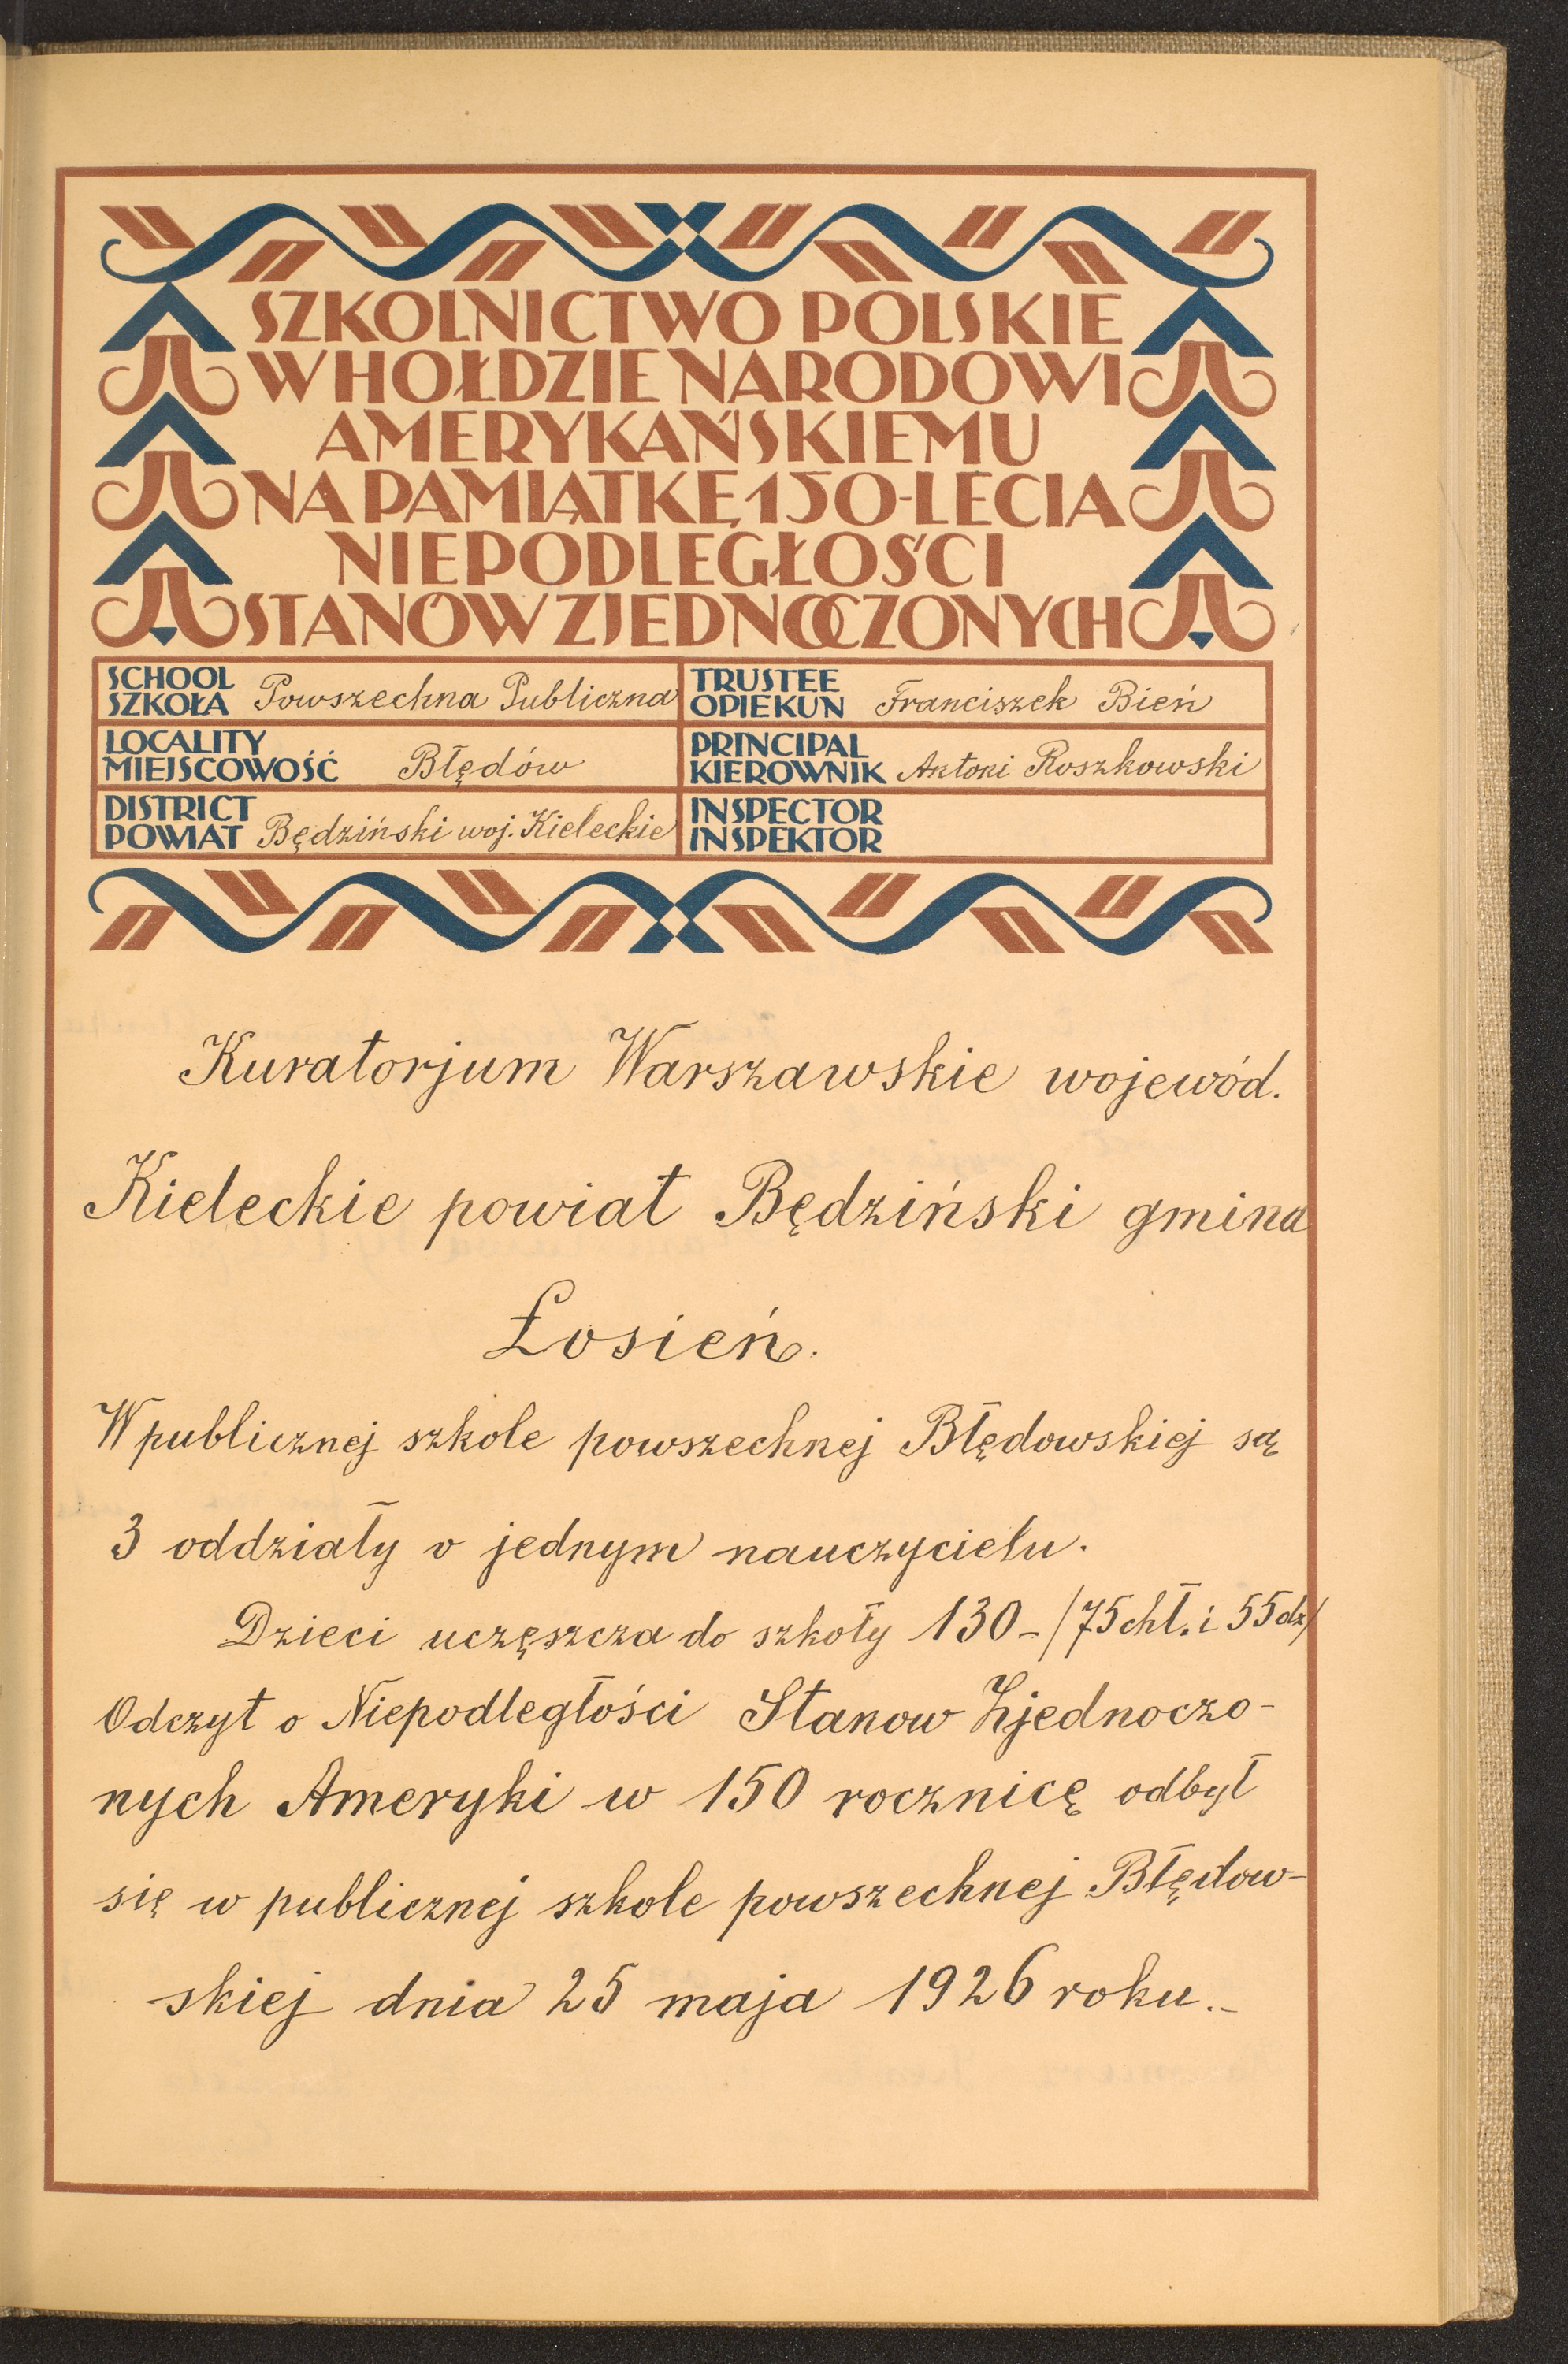 SZKOLNICTWO POLSKIE
W HOŁDZIE NARODOWI
AMERYKAŃSKIEMU
NA PAMIĄTKĘ 150-LECIA
NIEPODLEGŁOŚCI
STANÓW ZJEDNOCZONYCH
SCHOOL
SZKOŁA Powszechna Publiczna
TRUSTEE
OPIEKUN Franciszek Bień
LOCALITY
MIEJSCOWOŚĆ Błędów
PRINCIPAL
KIEROWNIK Antoni Roszkowski
DISTRICT
POWIAT Będziński woj. Kieleckie
INSPECTOR
INSPEKTOR
Kuratorjum Warszawskie wojewód.
Kieleckie powiat Będziński gmina
Łosień.
W publicznej szkole powszechnej Błędowskiej są
3 oddziały o jednym nauczycielu.
Dzieci uczęszcza do szkoły 130 - /75 chł. i 55 dz/
Odczyt o Niepodległości Stanow Zjednoczo-
nych Ameryki w 150 rocznicę odbył
się w publicznej szkole powszechnej Błędow-
skiej dnia 25 maja 1926 roku.-